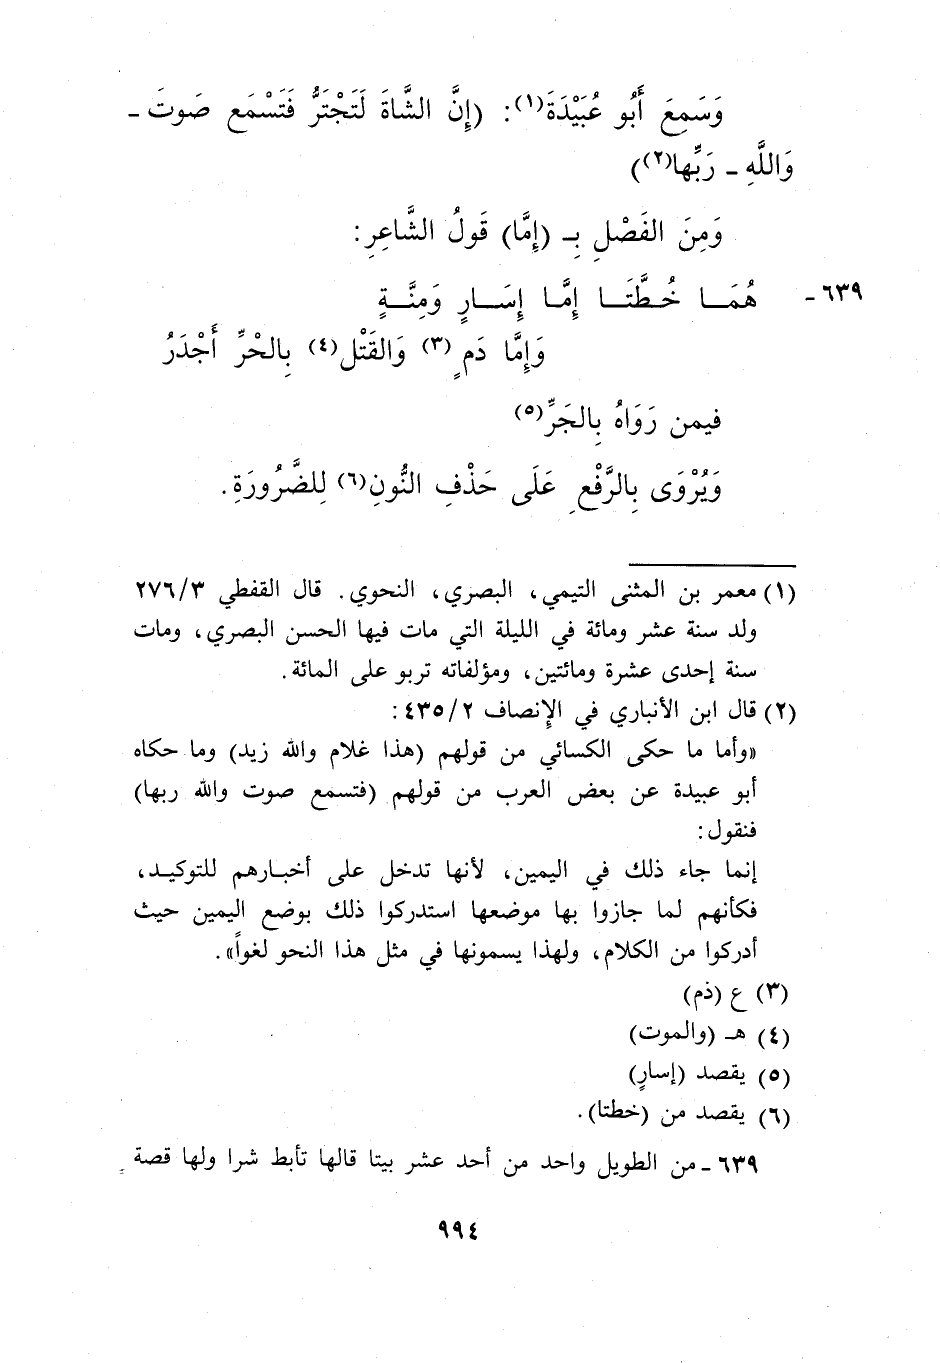 وَسَمِعَ أَبُو عُبَيْدَةَ(١): (إِنَّ الشَّاةَ لَتَجْتَرُّ فَتَسْمَع صَوتَ ـ
وَاللَّهِ ـ رَبِّها(٢))
وَمِنَ الفَصْلِ بِـ (إِمَّا) قَولُ الشَّاعِرِ:
٦٣٩ـ هُمَـا خُـطَّتَـا إِمَّـا إِسَـارٍ وَمِنَّـةٍ
وَإِمَّا دَمٍ (٣) وَالقَتْلِ(٤) بِالحْرِّ أَجْدَرُ
فيمن رَوَاهُ بِالجَرِّ(٥)
وَيُرْوَى بِالرَّفْعِ عَلَى حَذْفِ النُّونِ(٦) لِلضَّرُورَةِ.
(١) معمر بن المثنى التيمي، البصري، النحوي. قال القفطي ٢٧٦/٣
ولد سنة عشر ومائة في الليلة التي مات فيها الحسن البصري، ومات
سنة إحدى عشرة ومائتين، ومؤلفاته تربو على المائة.
(٢) قال ابن الأنباري في الإنصاف ٤٣٥/٢:
«وأما ما حكى الكسائي من قولهم (هذا غلام والله زيد) وما حكاه
أبو عبيدة عن بعض العرب من قولهم (فتسمع صوت والله ربها)
فنقول:
إنما جاء ذلك في اليمين، لأنها تدخل على أخبـارهم للتوكيـد،
فكأنهم لما جازوا بها موضعها استدركوا ذلك بوضع اليمين حيث
أدركوا من الكلام، ولهذا يسمونها في مثل هذا النحو لغواً».
(٣) ع (ذم)
(٤) هـ (والموت)
(٥) يقصد (إسارٍ)
(٦) يقصد من (خطتا).
٦٣٩ـ من الطويل واحد من أحد عشر بيتا قالها تأبط شرا ولها قصة
٩٩٤